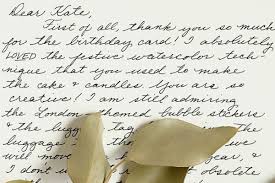 Dear Kate,
First of all, thank you so much
for the birthday card! I absolutely
LOVED the festive watercolor tech-
nique that you used to make
the cake & candles. You are so
creative! I am still admiring
the London-themed bubble stickers
& the lugg tag
luggage
will move
obsolete